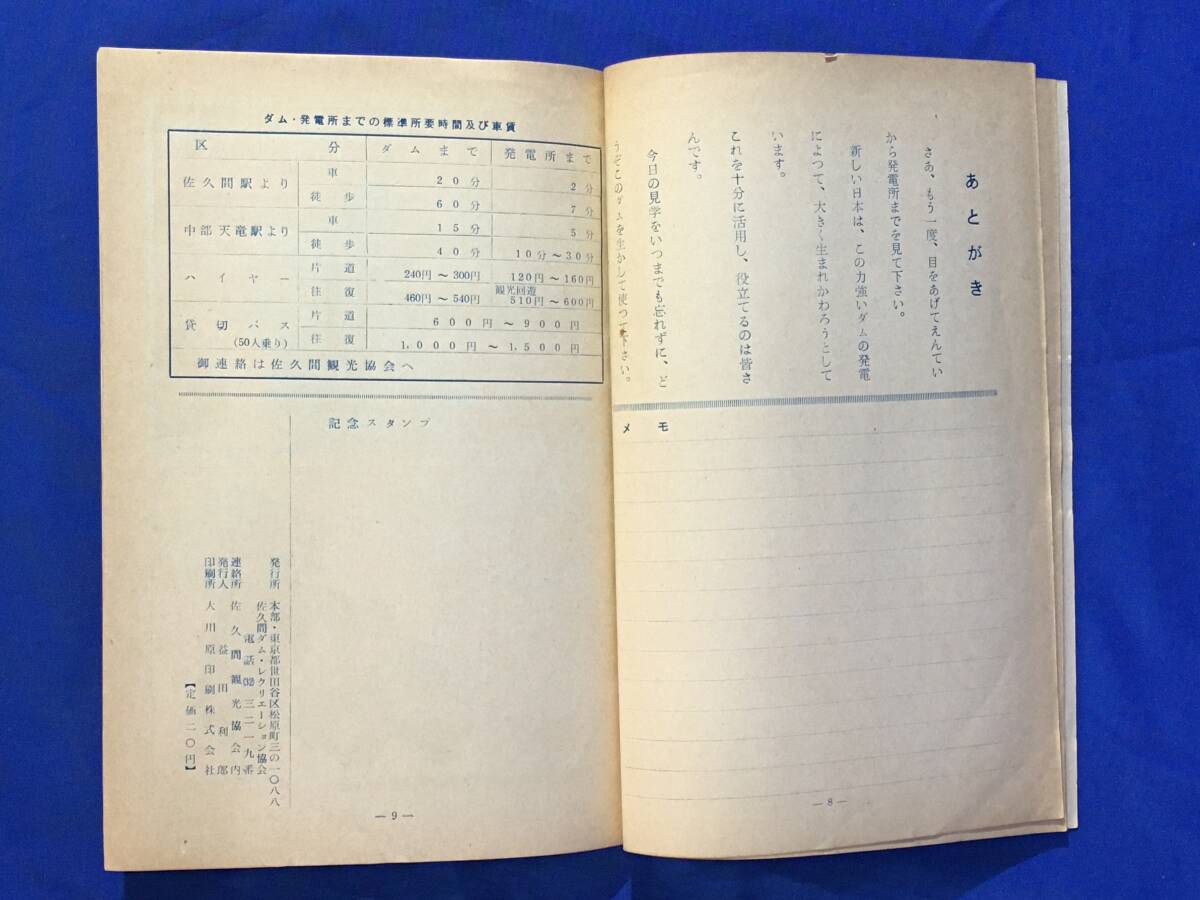 あとがき
さあ、もう一度、目をあげてえんてい
から発電所までを見て下さい。
新しい日本は、この力強いダムの発電
によつて、大きく生まれかわろうとして
います。
これを十分に活用し、役立てるのは皆さ
んです。
今日の見学をいつまでも忘れずに、ど
うぞこのダムを生かして使つて下さい。
メモ
— 8 —
ダム・発電所までの標準所要時間及び車賃
区 分 ダムまで 発電所まで
佐久間駅より 車 20分 2分
徒歩 60分 7分
中部天竜駅より 車 15分 5分
徒歩 40分 10分〜30分
ハイヤー 片道 240円〜300円 120円〜160円
往復 460円〜540円 観光回遊 510円〜600円
貸切バス (50人乗り) 片道 600円〜900円
往復 1,000円〜1,500円
御連絡は佐久間観光協会へ
記念スタンプ
発行所 本部・東京都世田谷区松原町三の一〇八八
佐久間ダム・レクリエーション協会
電話(32)三二一九番
連絡所 佐久間観光協会内
発行人 益田利郎
印刷所 大川原印刷株式会社
【定価二〇円】
— 9 —